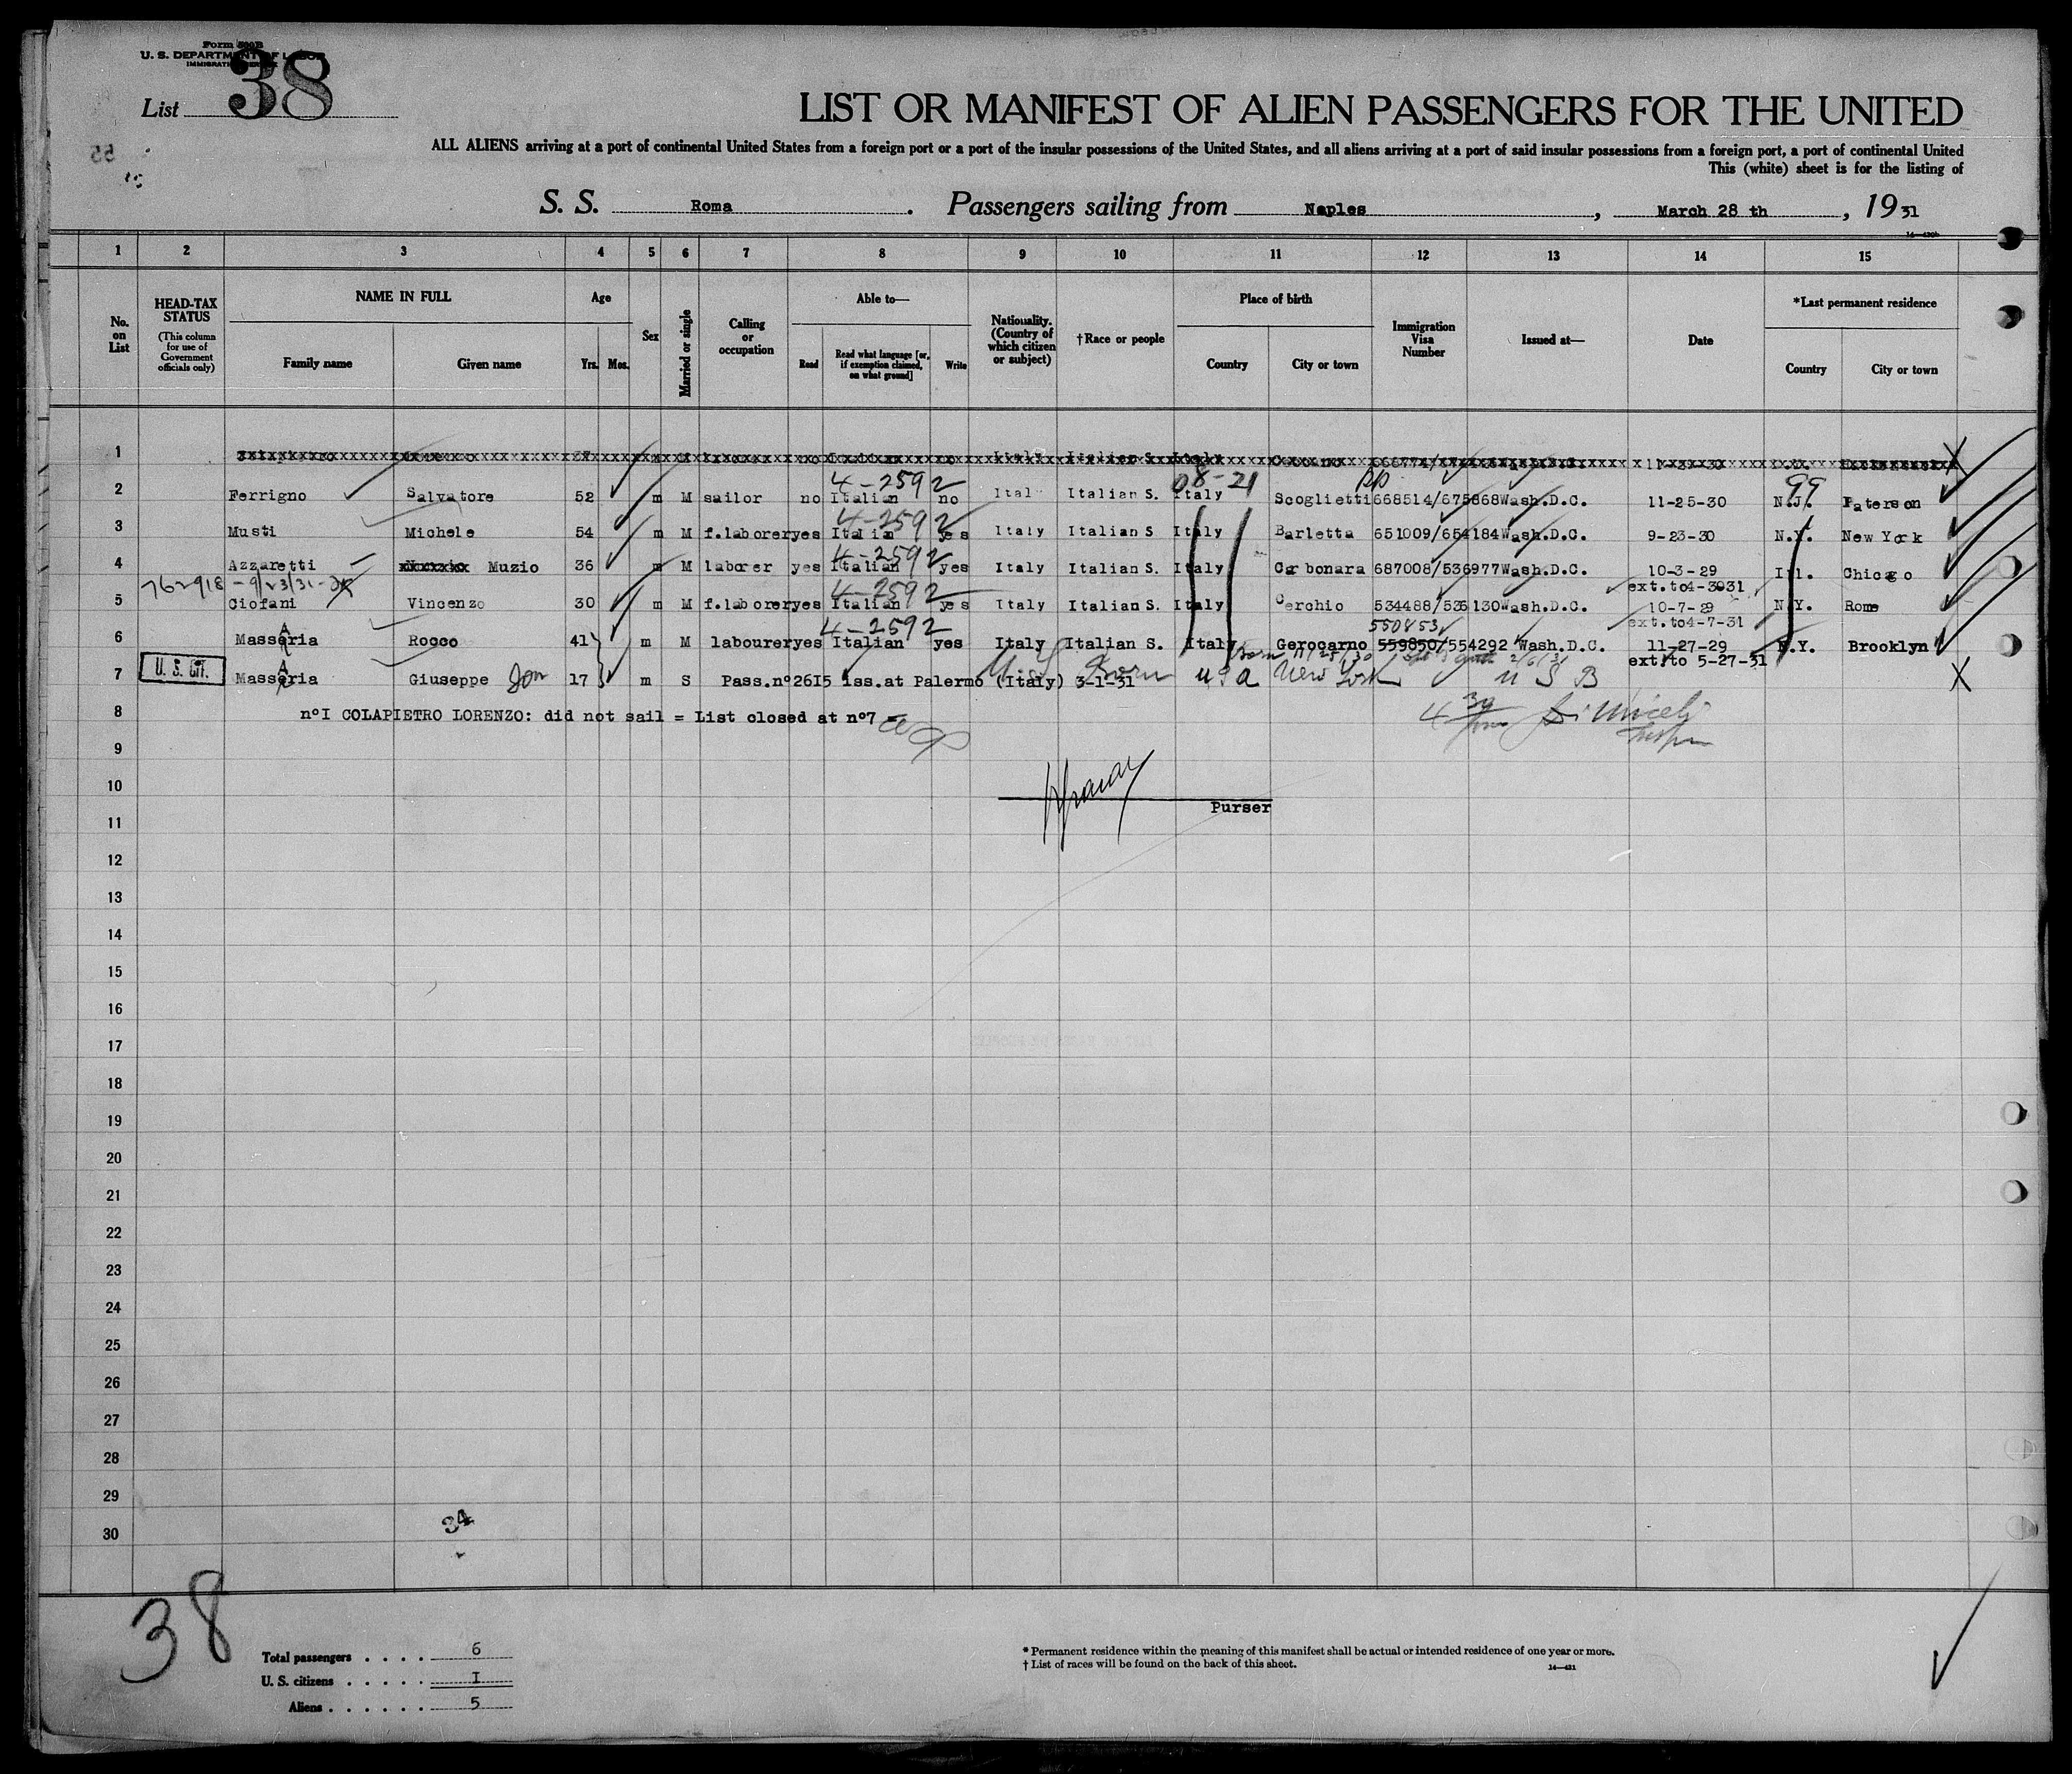 Form 500B
U. S. DEPARTMENT OF LABOR
IMMIGRATION SERVICE
List 38
LIST OR MANIFEST OF ALIEN PASSENGERS FOR THE UNITED
ALL ALIENS arriving at a port of continental United States from a foreign port or a port of the insular possessions of the United States, and all aliens arriving at a port of said insular possessions from a foreign port, a port of continental United
This (white) sheet is for the listing of
S. S. Roma. Passengers sailing from Naples, March 28 th, 1931
1 2 3 4 5 6 7 8 9 10 11 12 13 14 15
No. on List
HEAD-TAX STATUS (This column for use of Government officials only)
NAME IN FULL Family name Given name
Age Yrs. Mos.
Sex
Married or single
Calling or occupation
Able to— Read Read what language [or, if exemption claimed, on what ground] Write
Nationality. (Country of which citizen or subject)
†Race or people
Place of birth Country City or town
Immigration Visa Number
Issued at—
Date
*Last permanent residence Country City or town
1
4-2592 08-21 99
2 Ferrigno Salvatore 52 m M sailor no Italian no Italy Italian S. Italy Scoglietti 668514/675868 Wash.D.C. 11-25-30 N.J. Paterson
4-2592
3 Musti Michele 54 m M f.laborer yes Italian yes Italy Italian S Italy Barletta 651009/654184 Wash.D.C. 9-23-30 N.Y. New York
4-2592
4 Azzaretti Muzio 36 m M laborer yes Italian yes Italy Italian S. Italy Carbonara 687008/536977 Wash.D.C. 10-3-29 Ill. Chicago
ext.to4-3031
762-918 - 9/23/31 4-2592
5 Ciofani Vincenzo 30 m M f.laborer yes Italian yes Italy Italian S. Italy Cerchio 534488/536130 Wash.D.C. 10-7-29 N.Y. Rome
ext.to4-7-31
4-2592 550853
6 Masseria A Rocco 41 m M labourer yes Italian yes Italy Italian S. Italy Gerocarno 559850/554292 Wash.D.C. 11-27-29 N.Y. Brooklyn
ext.to 5-27-31
U. S. CIT.
7 Masseria A Giuseppe Son 17 m S Pass.n°26I5 iss.at Palermo (Italy) 3-1-31 USA New York U S B
8 n°I COLAPIETRO LORENZO: did not sail = List closed at n°7 =
9
10
Purser
11
12
13
14
15
16
17
18
19
20
21
22
23
24
25
26
27
28
29
34
30
38
Total passengers . . . . 6
U. S. citizens . . . . . I
Aliens . . . . . . 5
* Permanent residence within the meaning of this manifest shall be actual or intended residence of one year or more.
† List of races will be found on the back of this sheet.
14—431